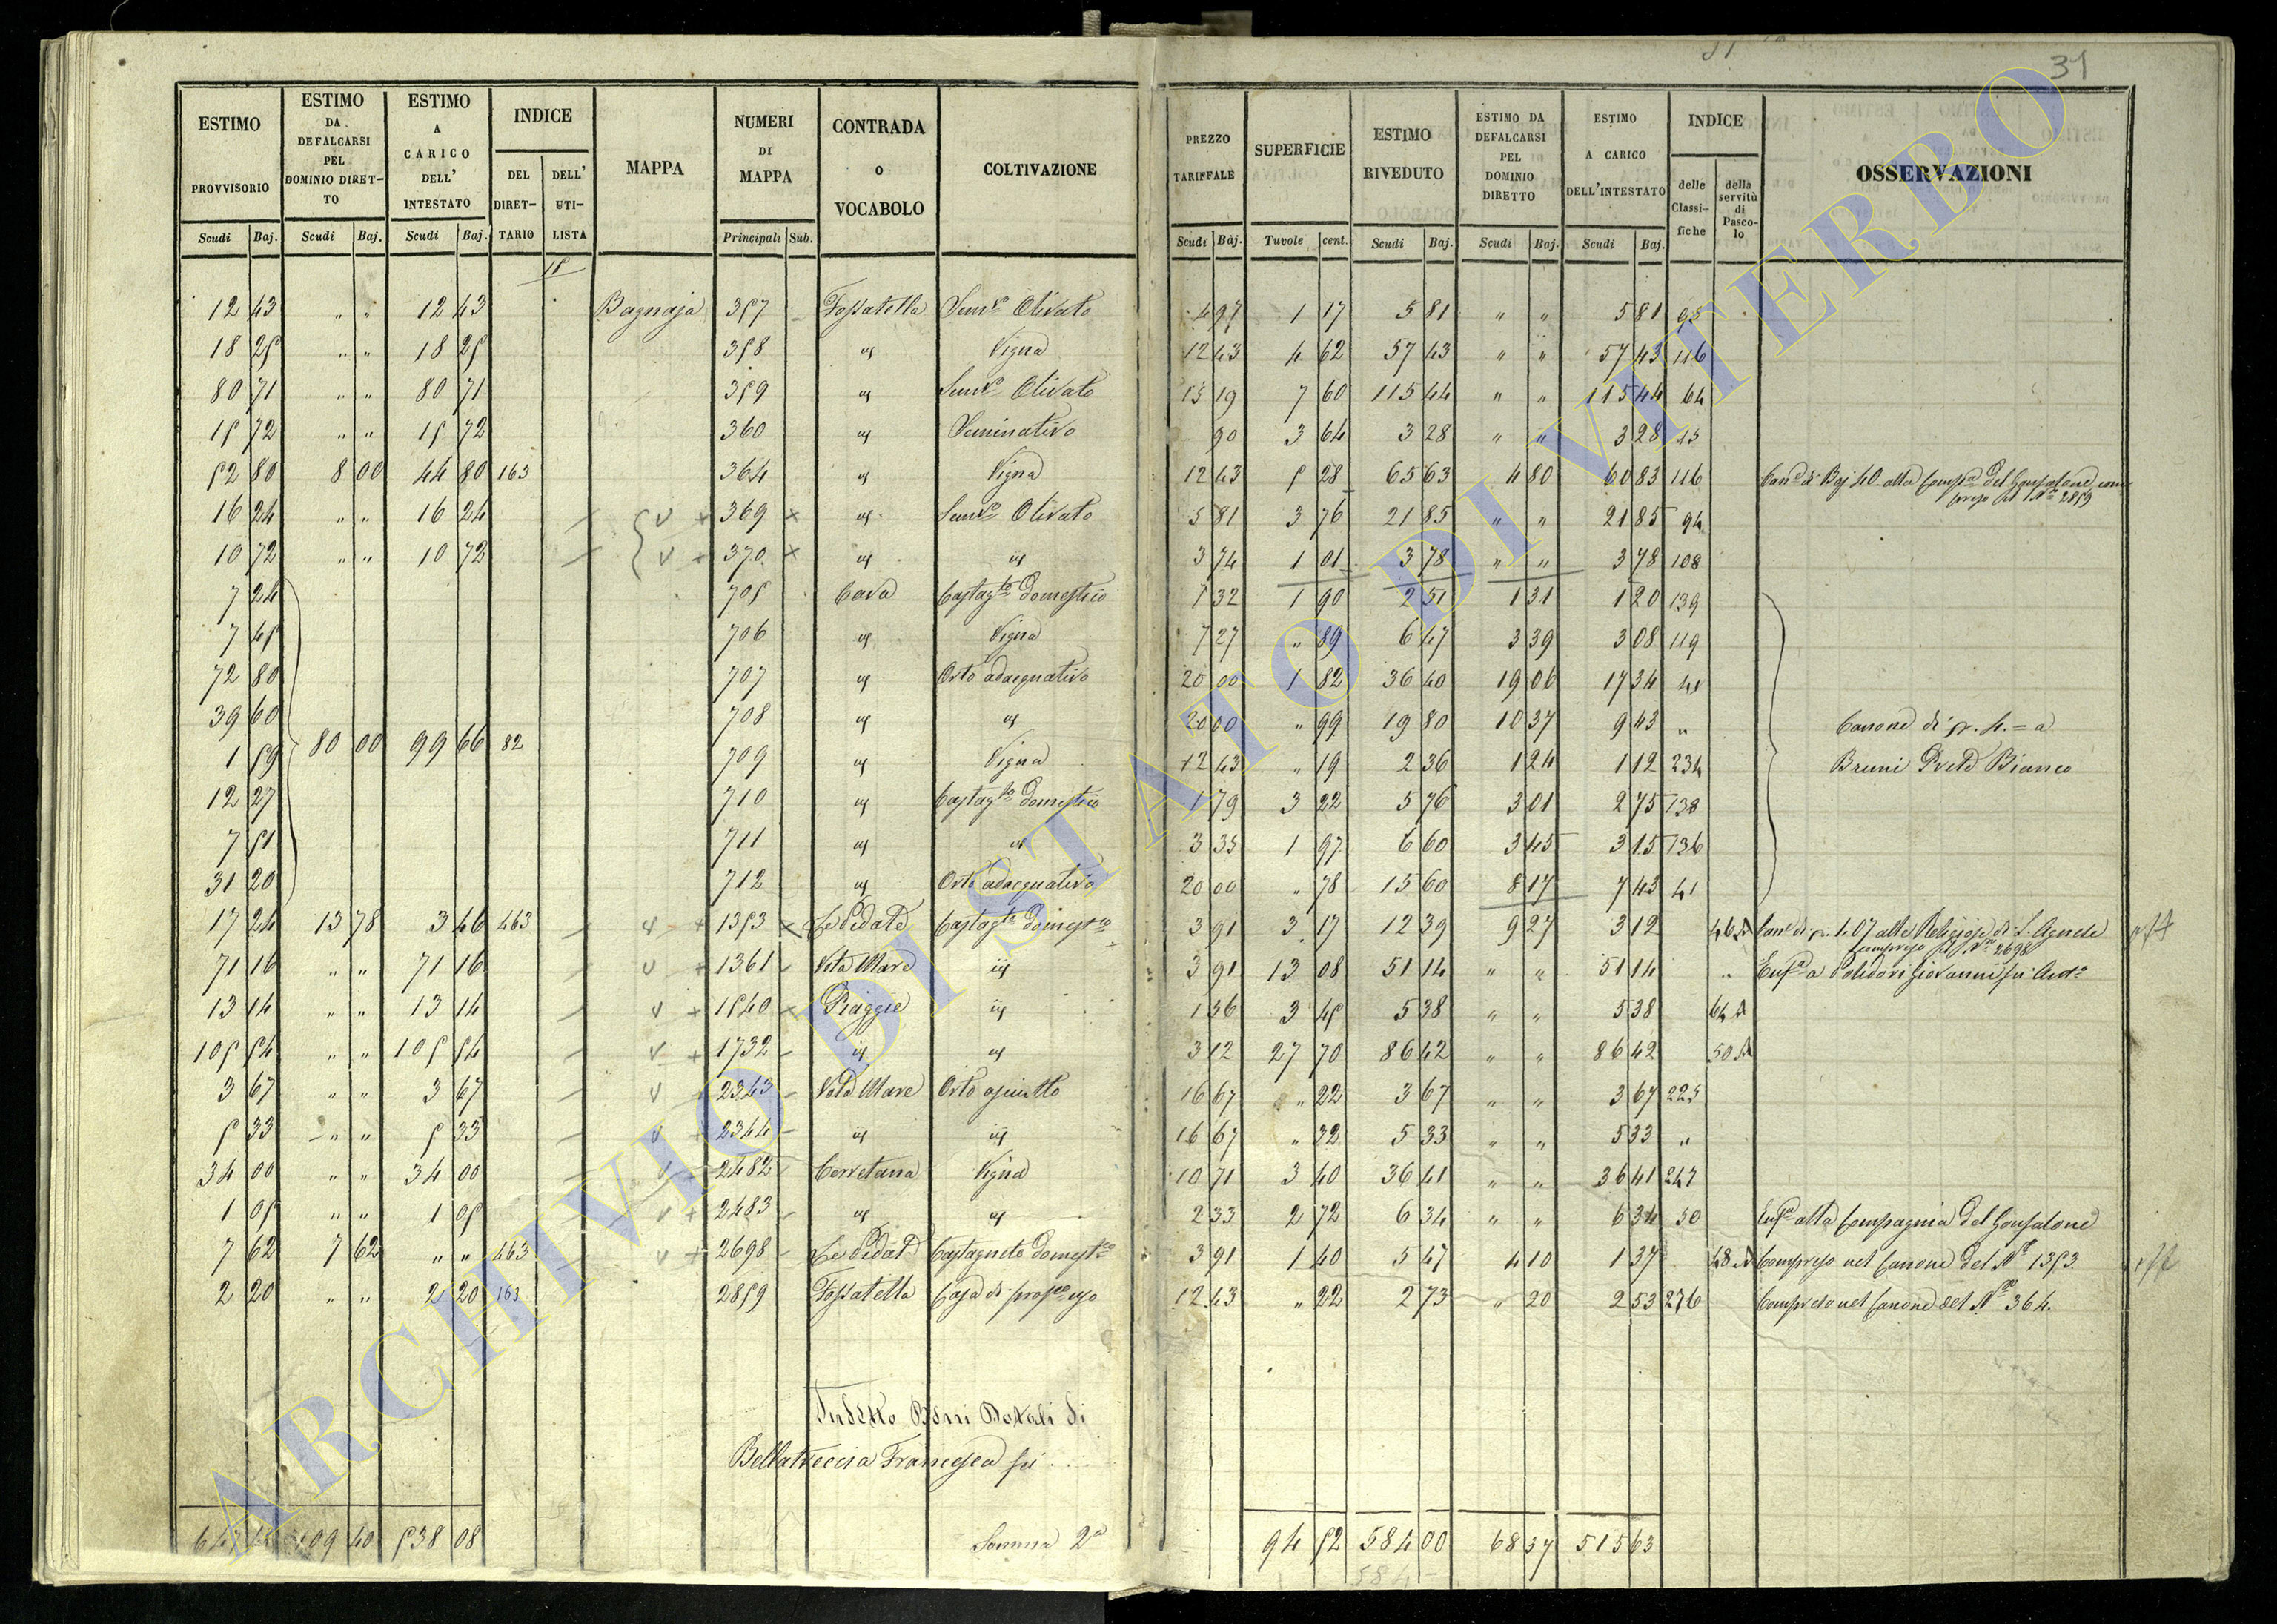 31
ESTIMO PROVVISORIO Scudi Baj. | ESTIMO DA DEFALCARSI PEL DOMINIO DIRETTO Scudi Baj. | ESTIMO A CARICO DELL' INTESTATO Scudi Baj. | INDICE DEL DIRETTARIO DELL' UTILISTA | MAPPA | NUMERI DI MAPPA Principali Sub. | CONTRADA O VOCABOLO | COLTIVAZIONE | PREZZO TARIFFALE Scudi Baj. | SUPERFICIE Tavole cent. | ESTIMO RIVEDUTO Scudi Baj. | ESTIMO DA DEFALCARSI PEL DOMINIO DIRETTO Scudi Baj. | ESTIMO A CARICO DELL'INTESTATO Scudi Baj. | INDICE delle Classifiche della servitù di Pascolo | OSSERVAZIONI
12 43 " " 12 43 Bagnaja 357 Fossatella Sem.o Olivato 4 97 1 17 5 81 " " 5 81 95
18 25 " " 18 25 358 id Vigna 12 43 4 62 57 43 " " 57 43 116
80 71 " " 80 71 359 id Sem.o Olivato 15 19 7 60 115 44 " " 115 44 64
15 72 " " 15 72 360 id Seminativo 90 3 64 3 28 " " 3 28 15
52 80 8 00 44 80 163 364 id Vigna 12 43 5 28 65 63 4 80 60 83 116 Can.e di Baj 40 alla Comp.a del Gonfalone com
preso il N.o 2859
16 24 " " 16 24 369 id Sem.o Olivato 5 81 3 76 21 85 " " 21 85 94
10 72 " " 10 72 370 id id 3 74 1 01 3 78 " " 3 78 108
7 24 705 Cava Castag.to domestico 1 32 1 90 2 51 1 31 1 20 139
7 45 706 id Vigna 7 27 " 89 6 47 3 39 3 08 119
72 80 707 id Orto adaequativo 20 00 1 82 36 40 19 06 17 34 41
39 60 708 id id 20 00 " 99 19 80 10 37 9 43 " Canone di sc. 4. = a
1 59 80 00 99 66 82 709 id Vigna 12 43 " 19 2 36 1 24 1 12 234 Bruni Bianco
12 27 710 id Castag.to domestico 1 79 3 22 5 76 3 01 2 75 138
7 51 711 id id 3 35 1 97 6 60 3 45 3 15 136
31 20 712 id Orto adaequativo 20 00 " 78 15 60 8 17 7 43 41
17 24 13 78 3 46 463 1353 Le Pedate Castag.to domest.co 3 91 3 17 12 39 9 27 3 12 46 A Can.e di sc. 1.07 alle Religiose di S. Agnese
compreso il N.o 2698
71 16 " " 71 16 1361 id 3 91 13 08 51 14 " " 51 14 " Enf.a a Polidori Giovanni fu Ant.o
13 14 " " 13 14 1540 Piagge id 1 56 3 45 5 38 " " 5 38 64 A
105 54 " " 105 54 1732 id id 3 12 27 70 86 42 " " 86 42 50 A
3 67 " " 3 67 2343 Orto asciutto 16 67 " 22 3 67 " " 3 67 225
5 33 " " 5 33 2344 id id 16 67 " 32 5 33 " " 5 33 "
34 00 " " 34 00 2482 Corvetana Vigna 10 71 3 40 36 41 " " 36 41 247
1 05 " " 1 05 2483 id id 2 33 2 72 6 34 " " 6 34 50 Enf.a alla Compagnia del Gonfalone
7 62 7 62 " " 463 2698 Le Pedate Castagneto domest.co 3 91 1 40 5 47 4 10 1 37 48 A Compreso nel Canone del N.o 1353
2 20 " " 2 20 163 2859 Fossatella Casa di prop.o uso 12 43 " 22 2 73 " 20 2 53 276 Compreso nel Canone del N.o 364.
Indetto Beni Dotali di
Bellatreccia Francesca fu
109 40 538 08 Somma 2a 94 52 584 00 68 37 515 63
ARCHIVIO DI STATO DI VITERBO